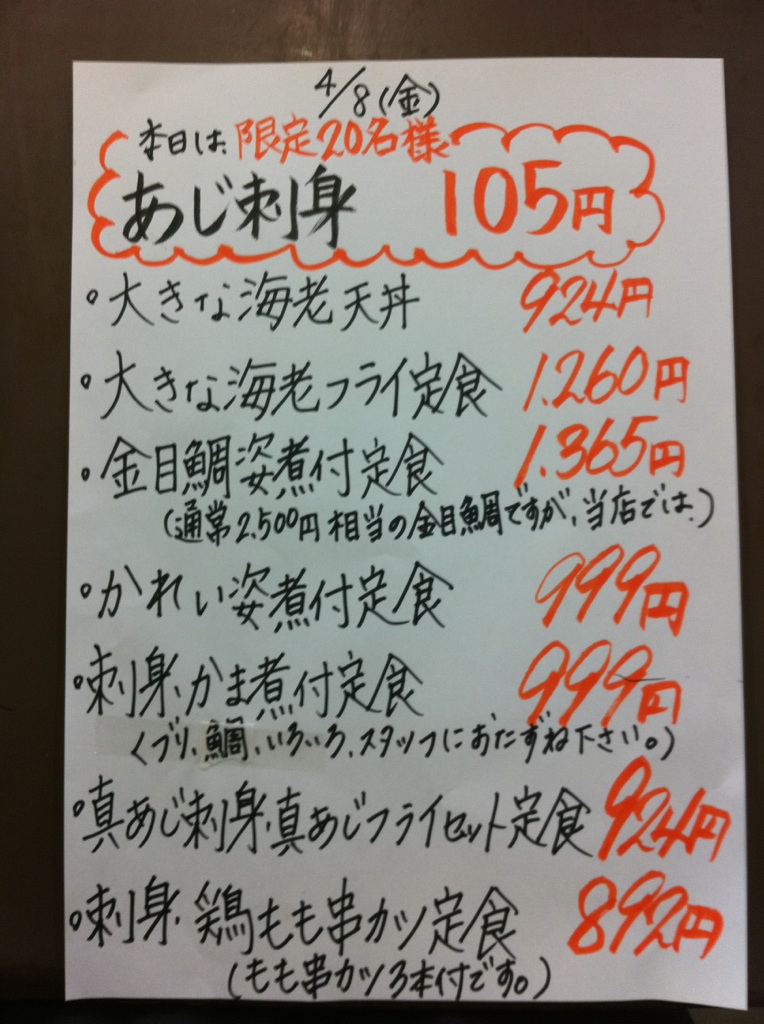 4/8(金)
本日は、限定20名様
あじ刺身 105円
・大きな海老天丼 924円
・大きな海老フライ定食 1.260円
・金目鯛姿煮付定食 1.365円
(通常2.500円相当の金目鯛ですが、当店では、)
・かれい姿煮付定食 999円
・刺身、かま煮付定食 999円
(ブリ、鯛、いろいろ、スタッフにおたずね下さい。)
・真あじ刺身、真あじフライセット定食 924円
・刺身、鶏もも串カツ定食 892円
(もも串カツ3本付です。)